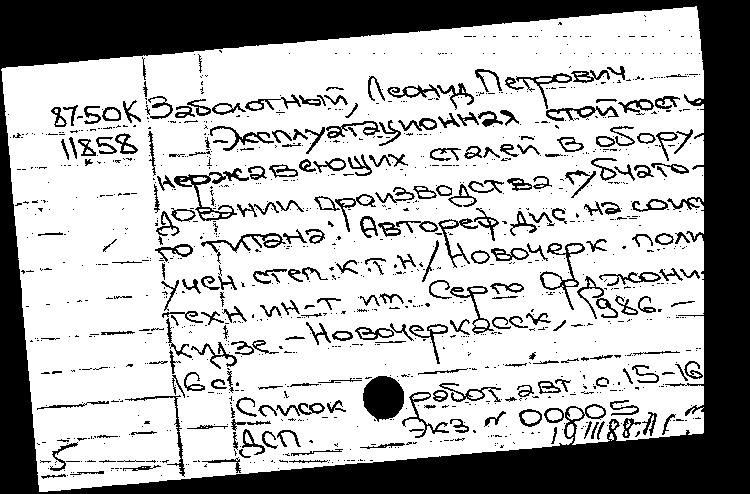 87-50К Заболотный, Леонид Петрович
11858 Эксплуатационная стойкость
нержавеющих сталей в обору-
довании производства губчато-
го титана: Автореф. дис. на соиск
учен. степ. к.т.н. / Новочерк. поли
техн. ин-т. им. Серго Орджони-
кидзе. - Новочеркасск, 1986. -
16 с.
Список работ авт.: с. 15-16
ДСП. Экз. № 00005
5